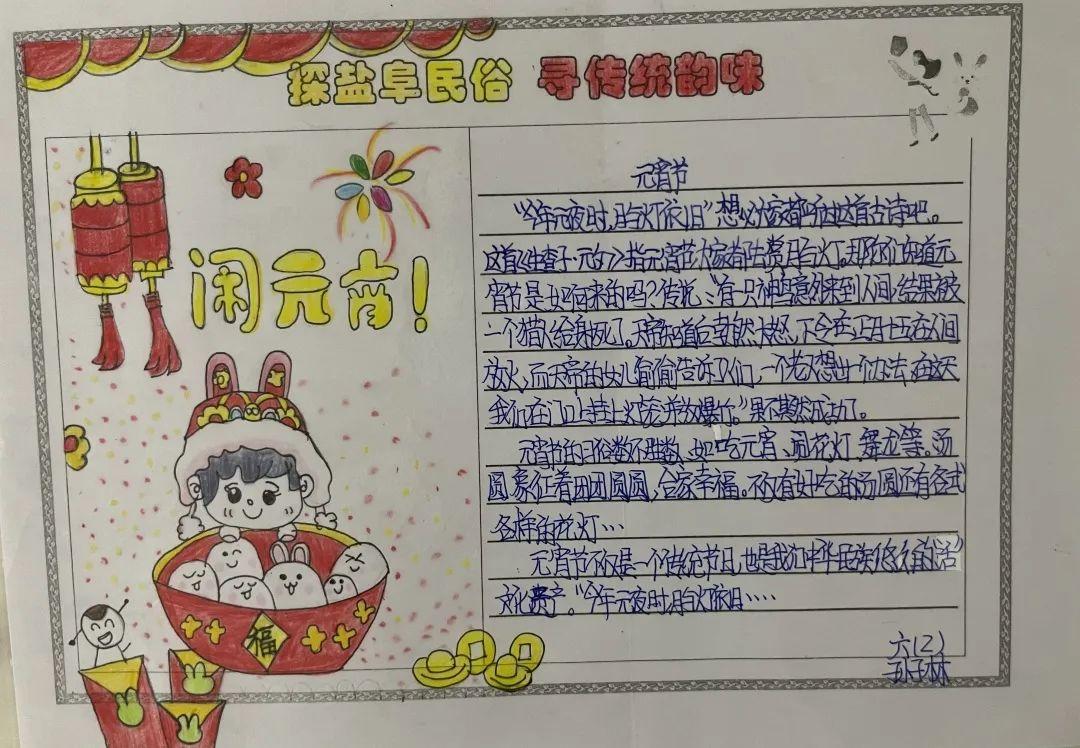 探盐阜民俗 寻传统韵味
闹元宵！
福
元宵节
“今年元夜时，月与灯依旧”想必大家都听过这首古诗吧。
这首《生查子·元夕》指元宵节大家都出赏月与灯。那你们知道元
宵节是如何来的吗？传说：有一只神鸟意外来到人间，结果被
一个猎人给射死了。天帝知道后勃然大怒，下令在正月十五在人间
放火，而天帝的女儿偷偷告诉人们，一个老人想出一个办法，在这天
我们在门上挂上火笼并放爆竹”果不其然成功了。
元宵节的习俗数不胜数，如吃元宵、闹花灯、舞龙等。汤
圆象征着团团圆圆，合家幸福。不仅有好吃的汤圆还有各式
各样的花灯…
元宵节不仅是一个传统节日，也是我们中华民族悠久的“活”
文化遗产。“今年元夜时，月与灯依旧……
六(2)
孙子林